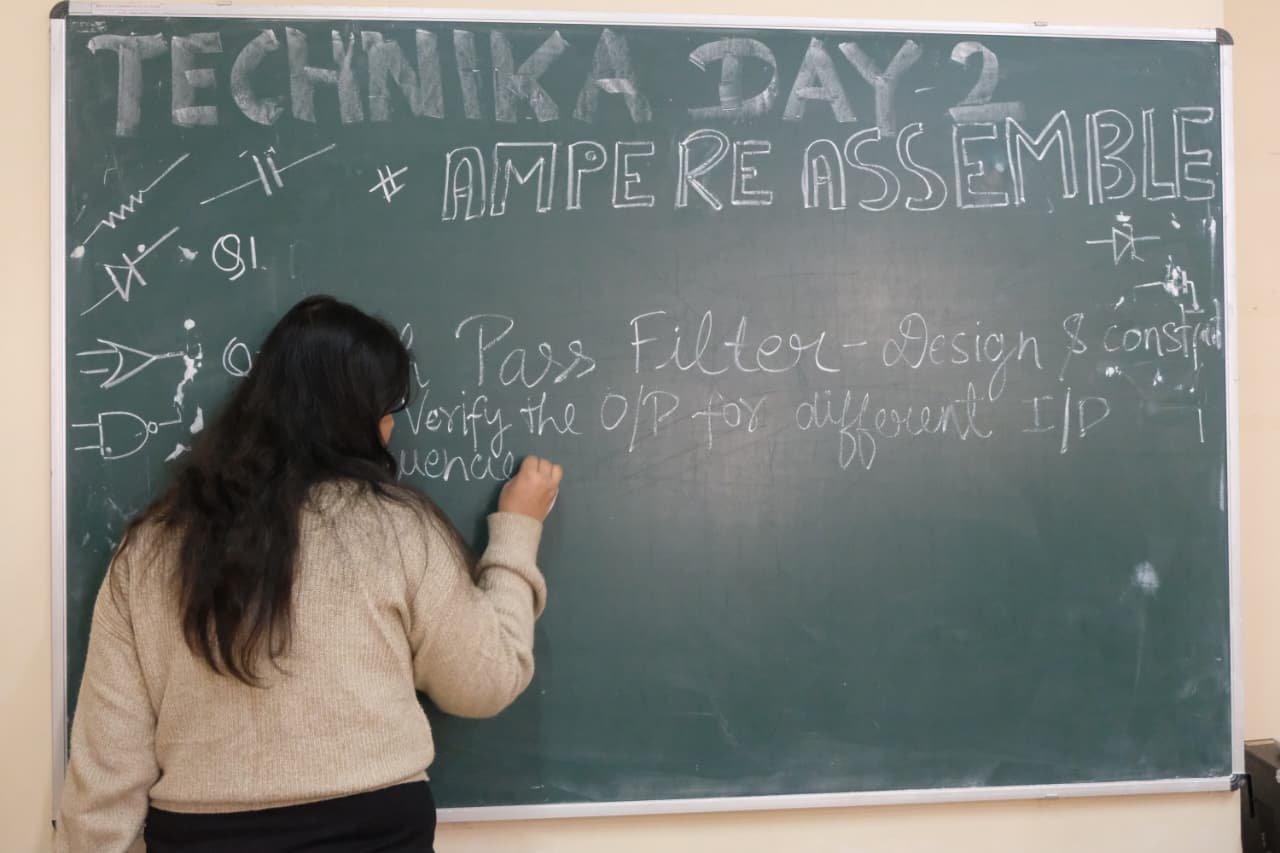 TECHNIKA DAY-2
# AMPERE ASSEMBLE
Q1.
Pass Filter- Design & construct
Verify the O/P for different I/P